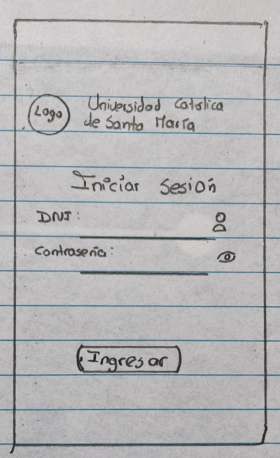 Logo
Universidad Catolica
de Santa María
Iniciar Sesión
DNI:
Contraseña:
Ingresar